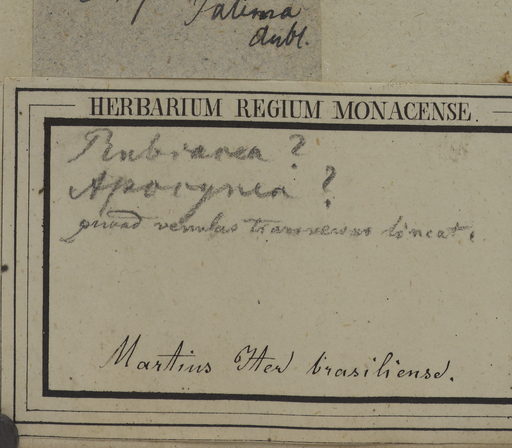 dubl.
HERBARIUM REGIUM MONACENSE.
Rubiacea ?
Apocynea ?
quoad venulas transversas lineat.
Martius Iter brasiliense.